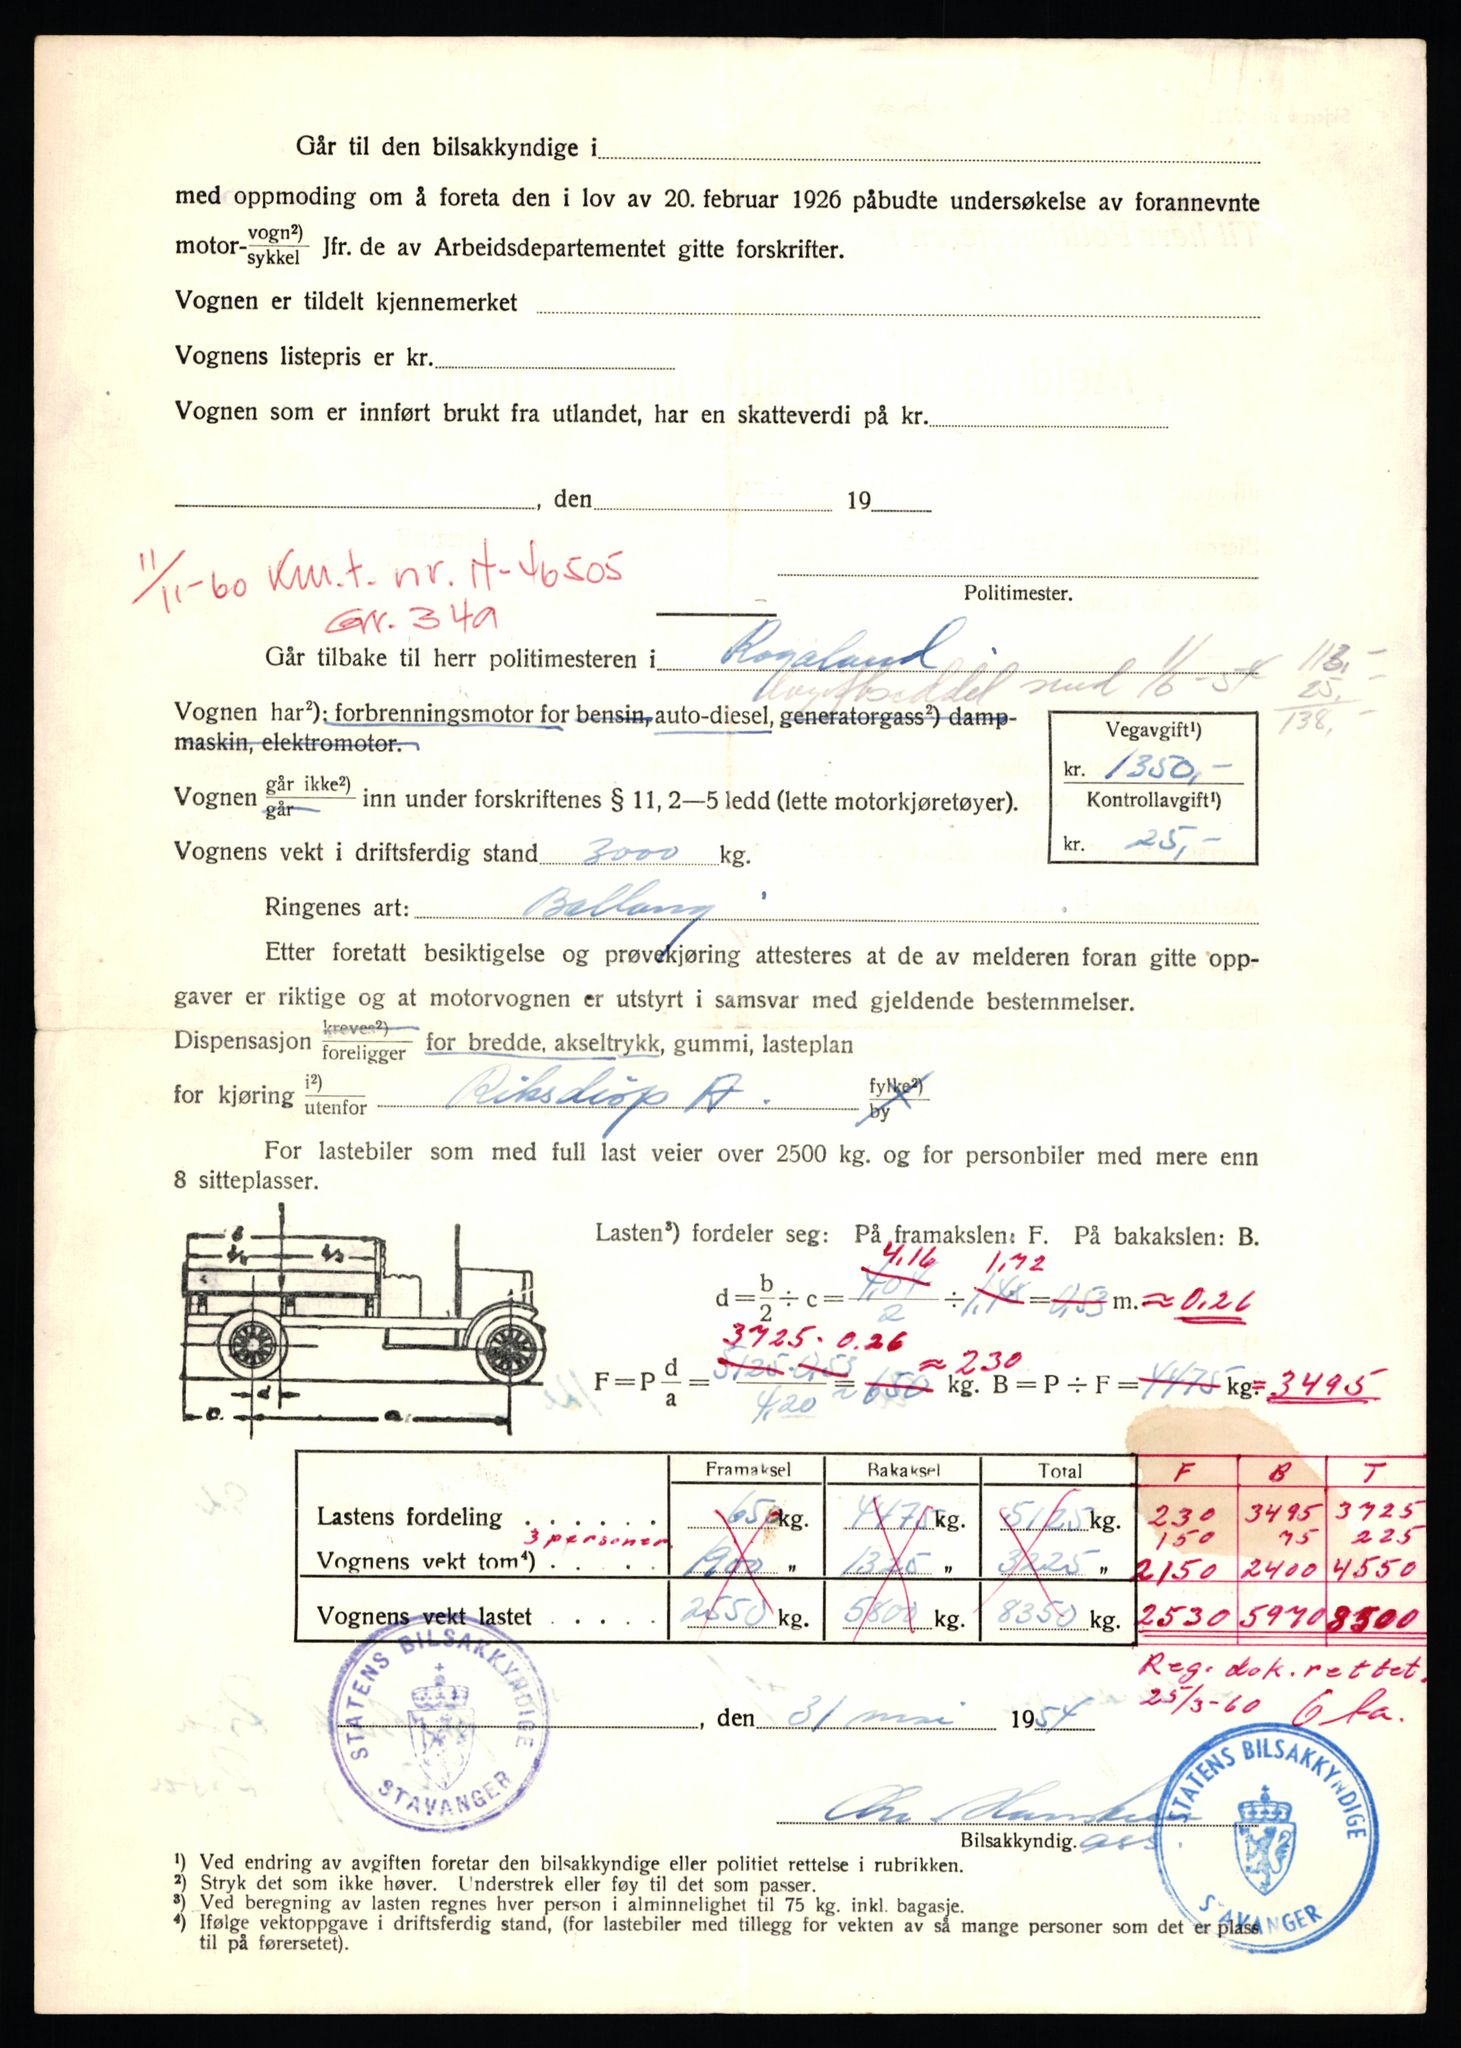 Går til den bilsakkyndige i
med oppmoding om å foreta den i lov av 20. februar 1926 påbudte undersøkelse av forannevnte
motor-vogn²)/sykkel Jfr. de av Arbeidsdepartementet gitte forskrifter.
Vognen er tildelt kjennemerket
Vognens listepris er kr.
Vognen som er innført brukt fra utlandet, har en skatteverdi på kr.
, den 19
11/11-60 Km.t. nr. H-46505
Gr. 34a
Politimester.
Går tilbake til herr politimesteren i Rogaland
med 1/6-54
113,-
25,-
138,-
Vognen har²): forbrenningsmotor for bensin, auto-diesel, generatorgass²) damp-
maskin, elektromotor.
Vegavgift¹)
kr. 1350,-
Kontrollavgift¹)
kr. 25,-
Vognen går ikke²)/går inn under forskriftenes § 11, 2—5 ledd (lette motorkjøretøyer).
Vognens vekt i driftsferdig stand 3000 kg.
Ringenes art: Ballong
Etter foretatt besiktigelse og prøvekjøring attesteres at de av melderen foran gitte opp-
gaver er riktige og at motorvognen er utstyrt i samsvar med gjeldende bestemmelser.
Dispensasjon kreves²)/foreligger for bredde, akseltrykk, gummi, lasteplan
for kjøring i²)/utenfor Riksdisp A. fylke²)/by
For lastebiler som med full last veier over 2500 kg. og for personbiler med mere enn
8 sitteplasser.
Lasten³) fordeler seg: På framakslen: F. På bakakslen: B.
4,16 1,72
d = b/2 ÷ c = 4,04/2 ÷ 1,48 = 0,53 m. ≈ 0.26
3725 · 0.26 ≈ 230
F = P d/a = 5125 · 0,53/4,20 = ≈ 650 kg. B = P ÷ F = 4475 kg. = 3495
b
b/2 b/2
d
c. a.
Framaksel Bakaksel Total F B T
Lastens fordeling 650 kg. 4475 kg. 5125 kg. 230 3495 3725
3 personer 150 75 225
Vognens vekt tom⁴) 1900 „ 1325 „ 3225 „ 2150 2400 4550
Vognens vekt lastet 2550 kg. 5800 kg. 8350 kg. 2530 5970 8500
Reg. dok. rettet.
25/3-60
STATENS BILSAKKYNDIGE
STAVANGER
, den 31 mai 1954
Bilsakkyndig. ass.
STATENS BILSAKKYNDIGE
2
STAVANGER
¹) Ved endring av avgiften foretar den bilsakkyndige eller politiet rettelse i rubrikken.
²) Stryk det som ikke høver. Understrek eller føy til det som passer.
³) Ved beregning av lasten regnes hver person i alminnelighet til 75 kg. inkl. bagasje.
⁴) Ifølge vektoppgave i driftsferdig stand, (for lastebiler med tillegg for vekten av så mange personer som det er plass
til på førersetet).